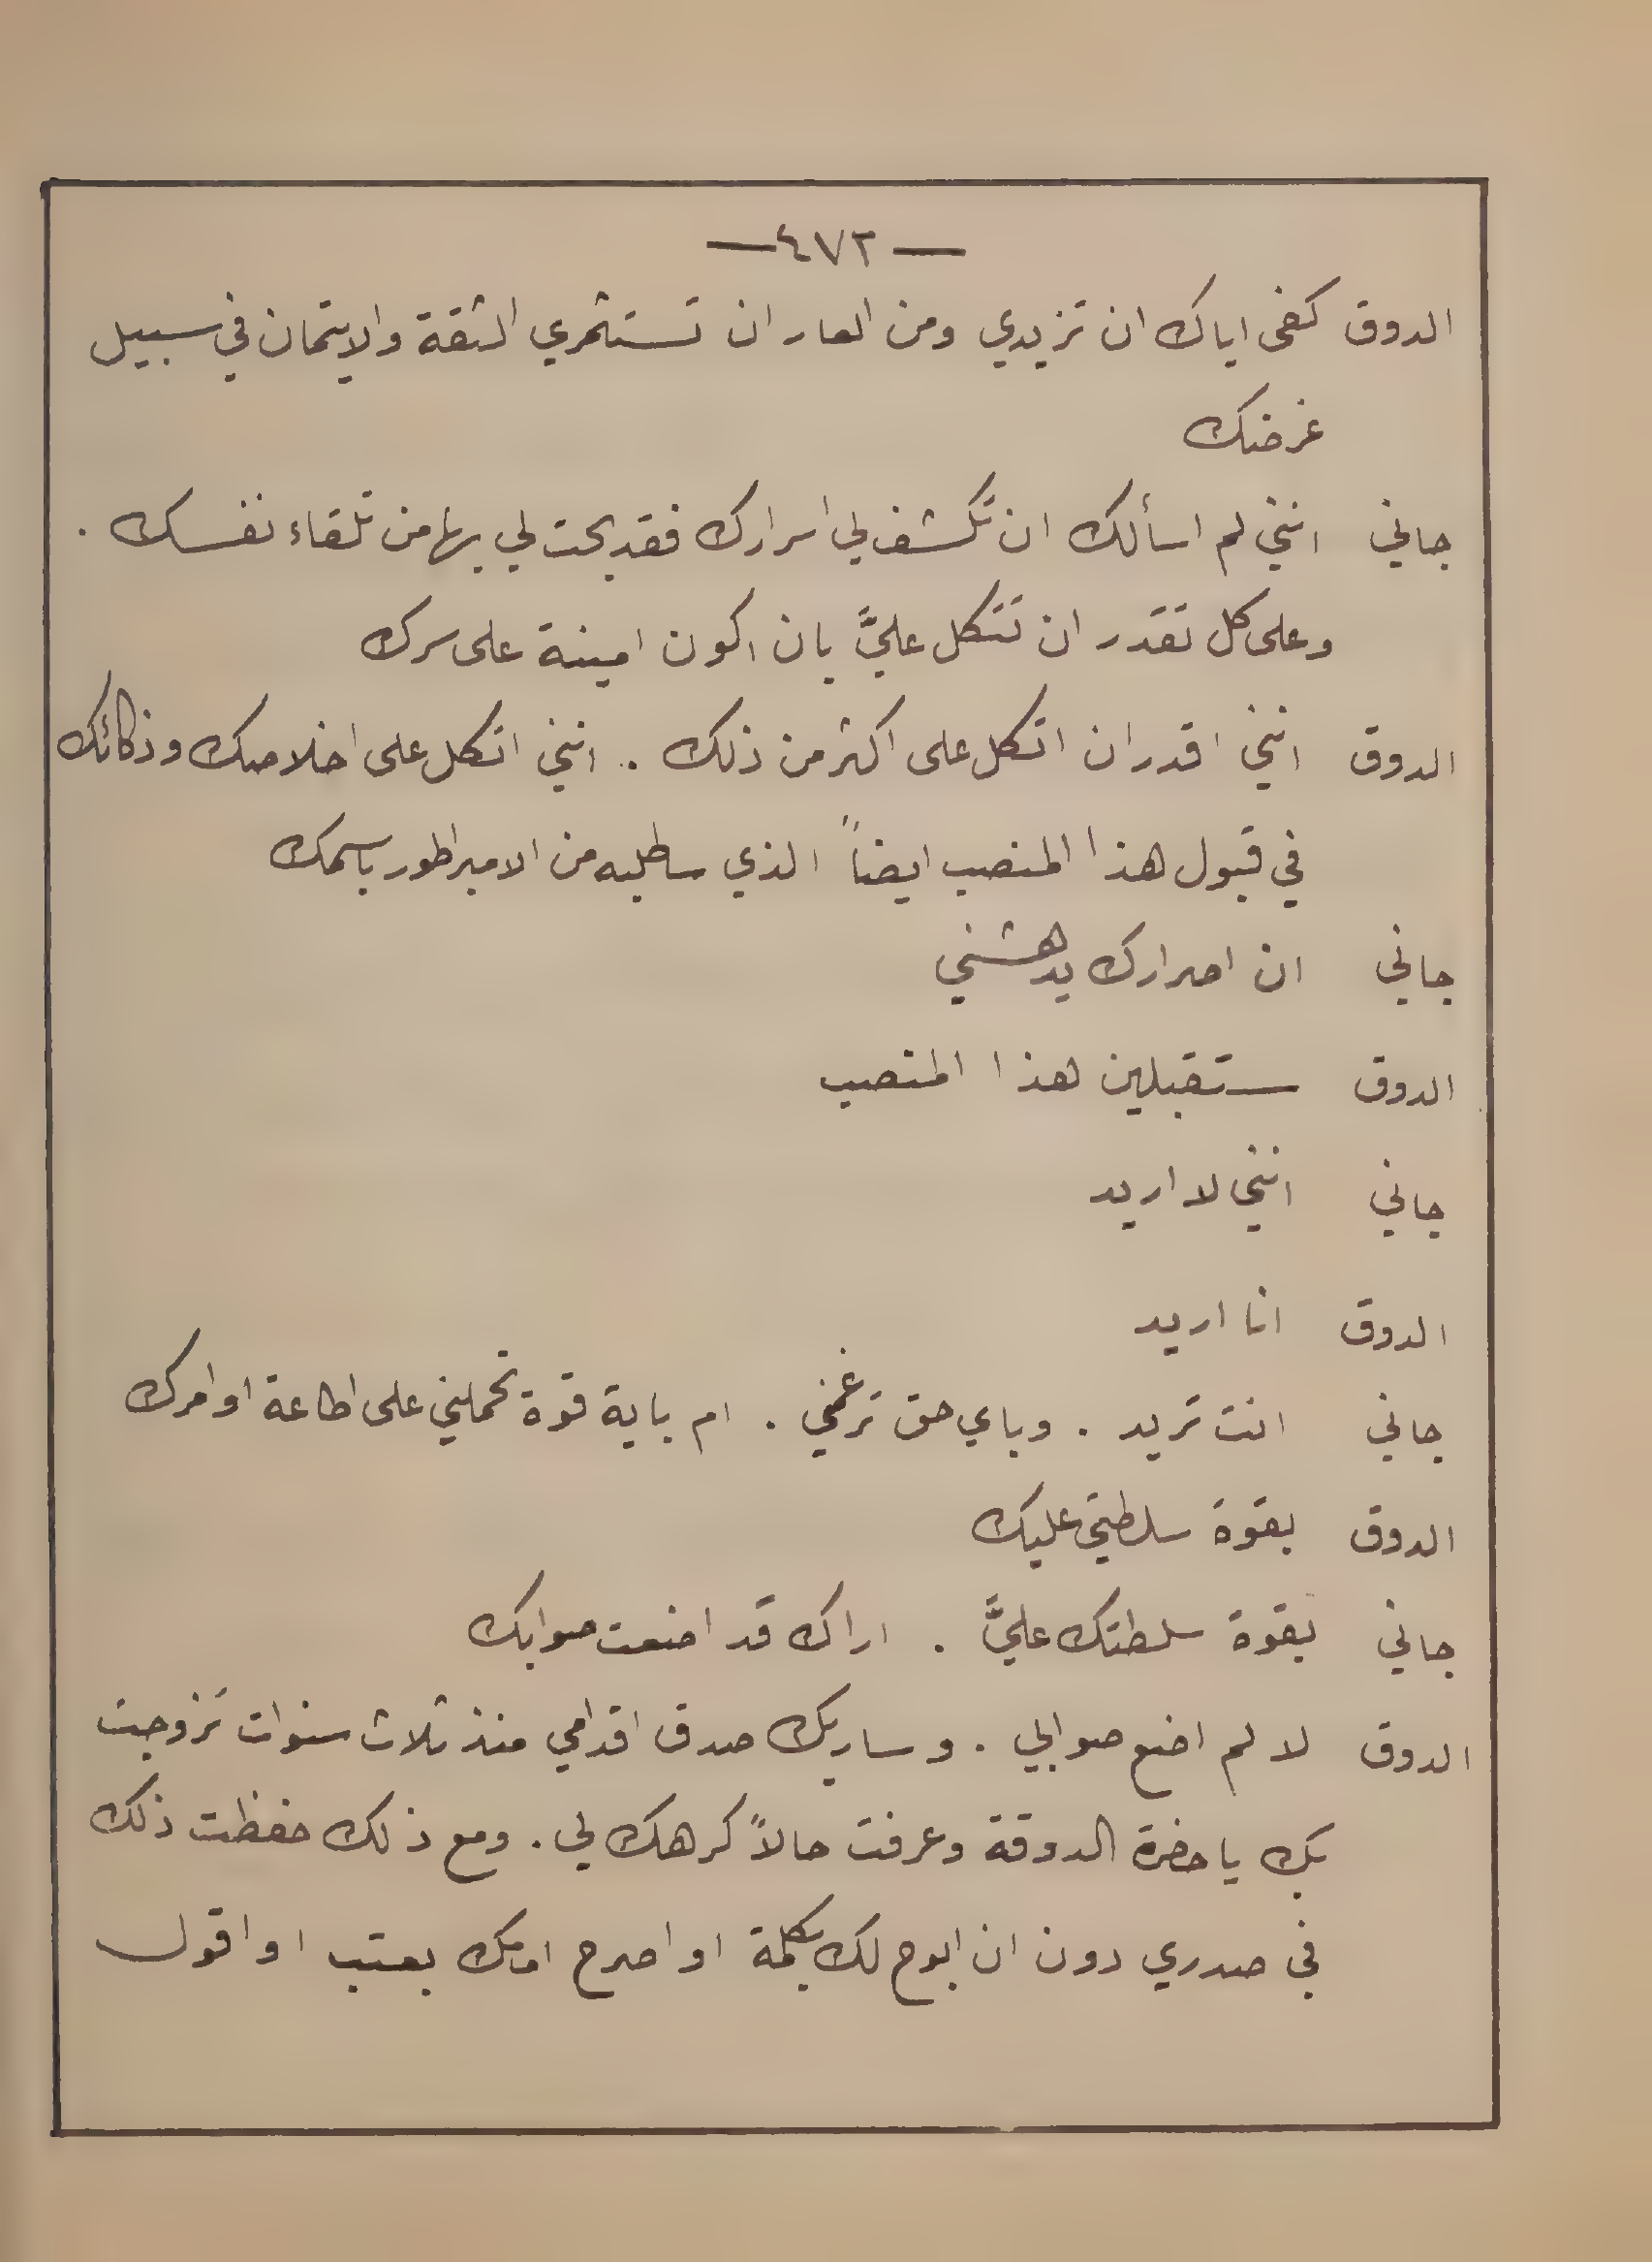 — ٤٧٢ —
الدوق كفى اياك ان تزيدي ومن العار ان تستثمري الثقة والايتمان في سبيل
غرضك
جاني انني لم اسألك ان تكشف لي اسرارك فقد بحت لي بها من تلقاء نفسك .
وعلى كل تقدر ان تتكل عليَّ بان اكون امينة على سرك
الدوق انني اقدر ان اتكل على اكثر من ذلك . انني اتكل على اخلاصك وذكائك
في قبول هذا المنصب ايضاً الذي ساطلبه من الامبراطور باسمك
جاني ان اصرارك يدهشني
الدوق ستقبلين هذا المنصب
جاني انني لا اريد
الدوق انا اريد
جاني انت تريد . وباي حق ترغمني . ام باية قوة تحملني على اطاعة اوامرك
الدوق بقوة سلطتي عليك
جاني بقوة سلطتك عليَّ . اراك قد اضعت صوابك
الدوق لا لم اضع صوابي . وساريك صدق اقدامي منذ ثلاث سنوات تزوجت
بك يا حضرة الدوقة وعرفت حالاً كرهك لي . ومع ذلك حفظت ذلك
في صدري دون ان ابوح لك بكلمة او اصرح امامك بعتب او اقول